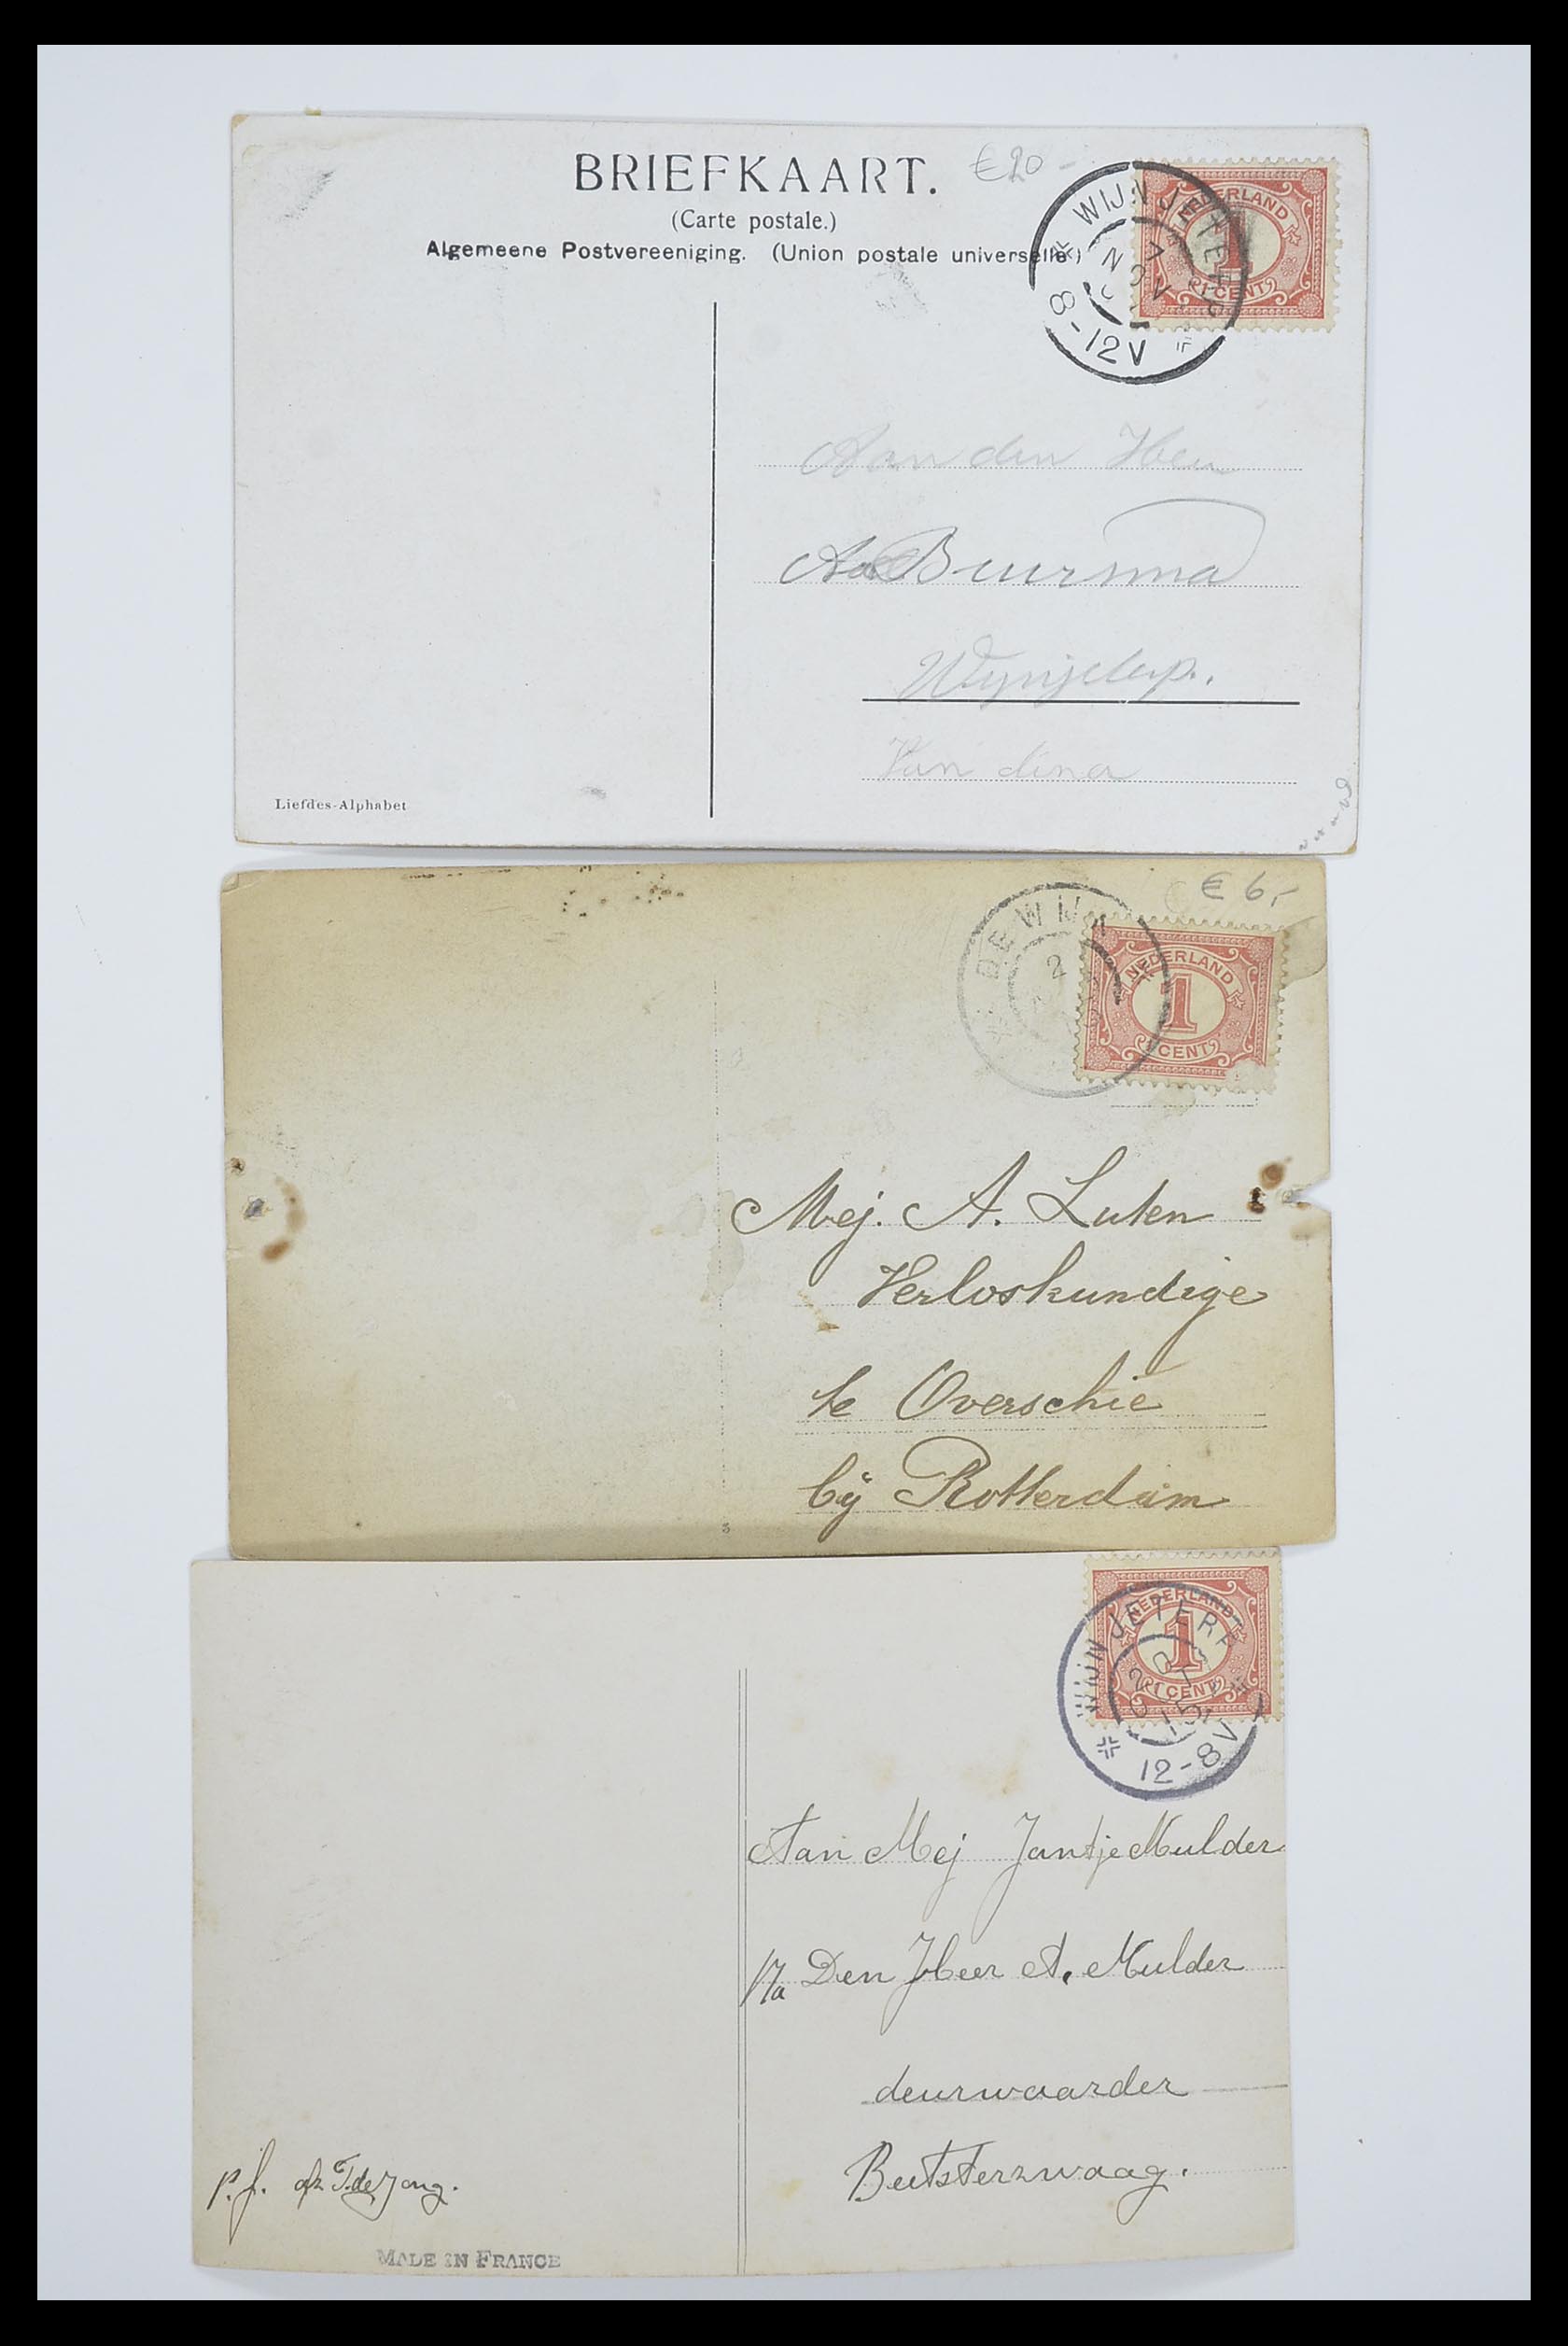 BRIEFKAART.
€20-
(Carte postale.)
Algemeene Postvereeniging. (Union postale universelle)
WIJNJETERP
7 NOV
8-12V
NEDERLAND
1
1 CENT
Aan den Heer
A Buursma
Wynjeterp.
Van dina
Liefdes-Alphabet
€ 6,-
DEWIJK
2
NEDERLAND
1
CENT
Mej. A. Luten
Verloskundige
te Overschie
bij Rotterdam
3
NEDERLAND
1
1 CENT
WIJNJETERP
12-8V
Aan Mej Jantje Mulder
P/a Den Heer A. Mulder
deurwaarder
Beetsterzwaag.
p.f. T. de Jong.
MADE IN FRANCE